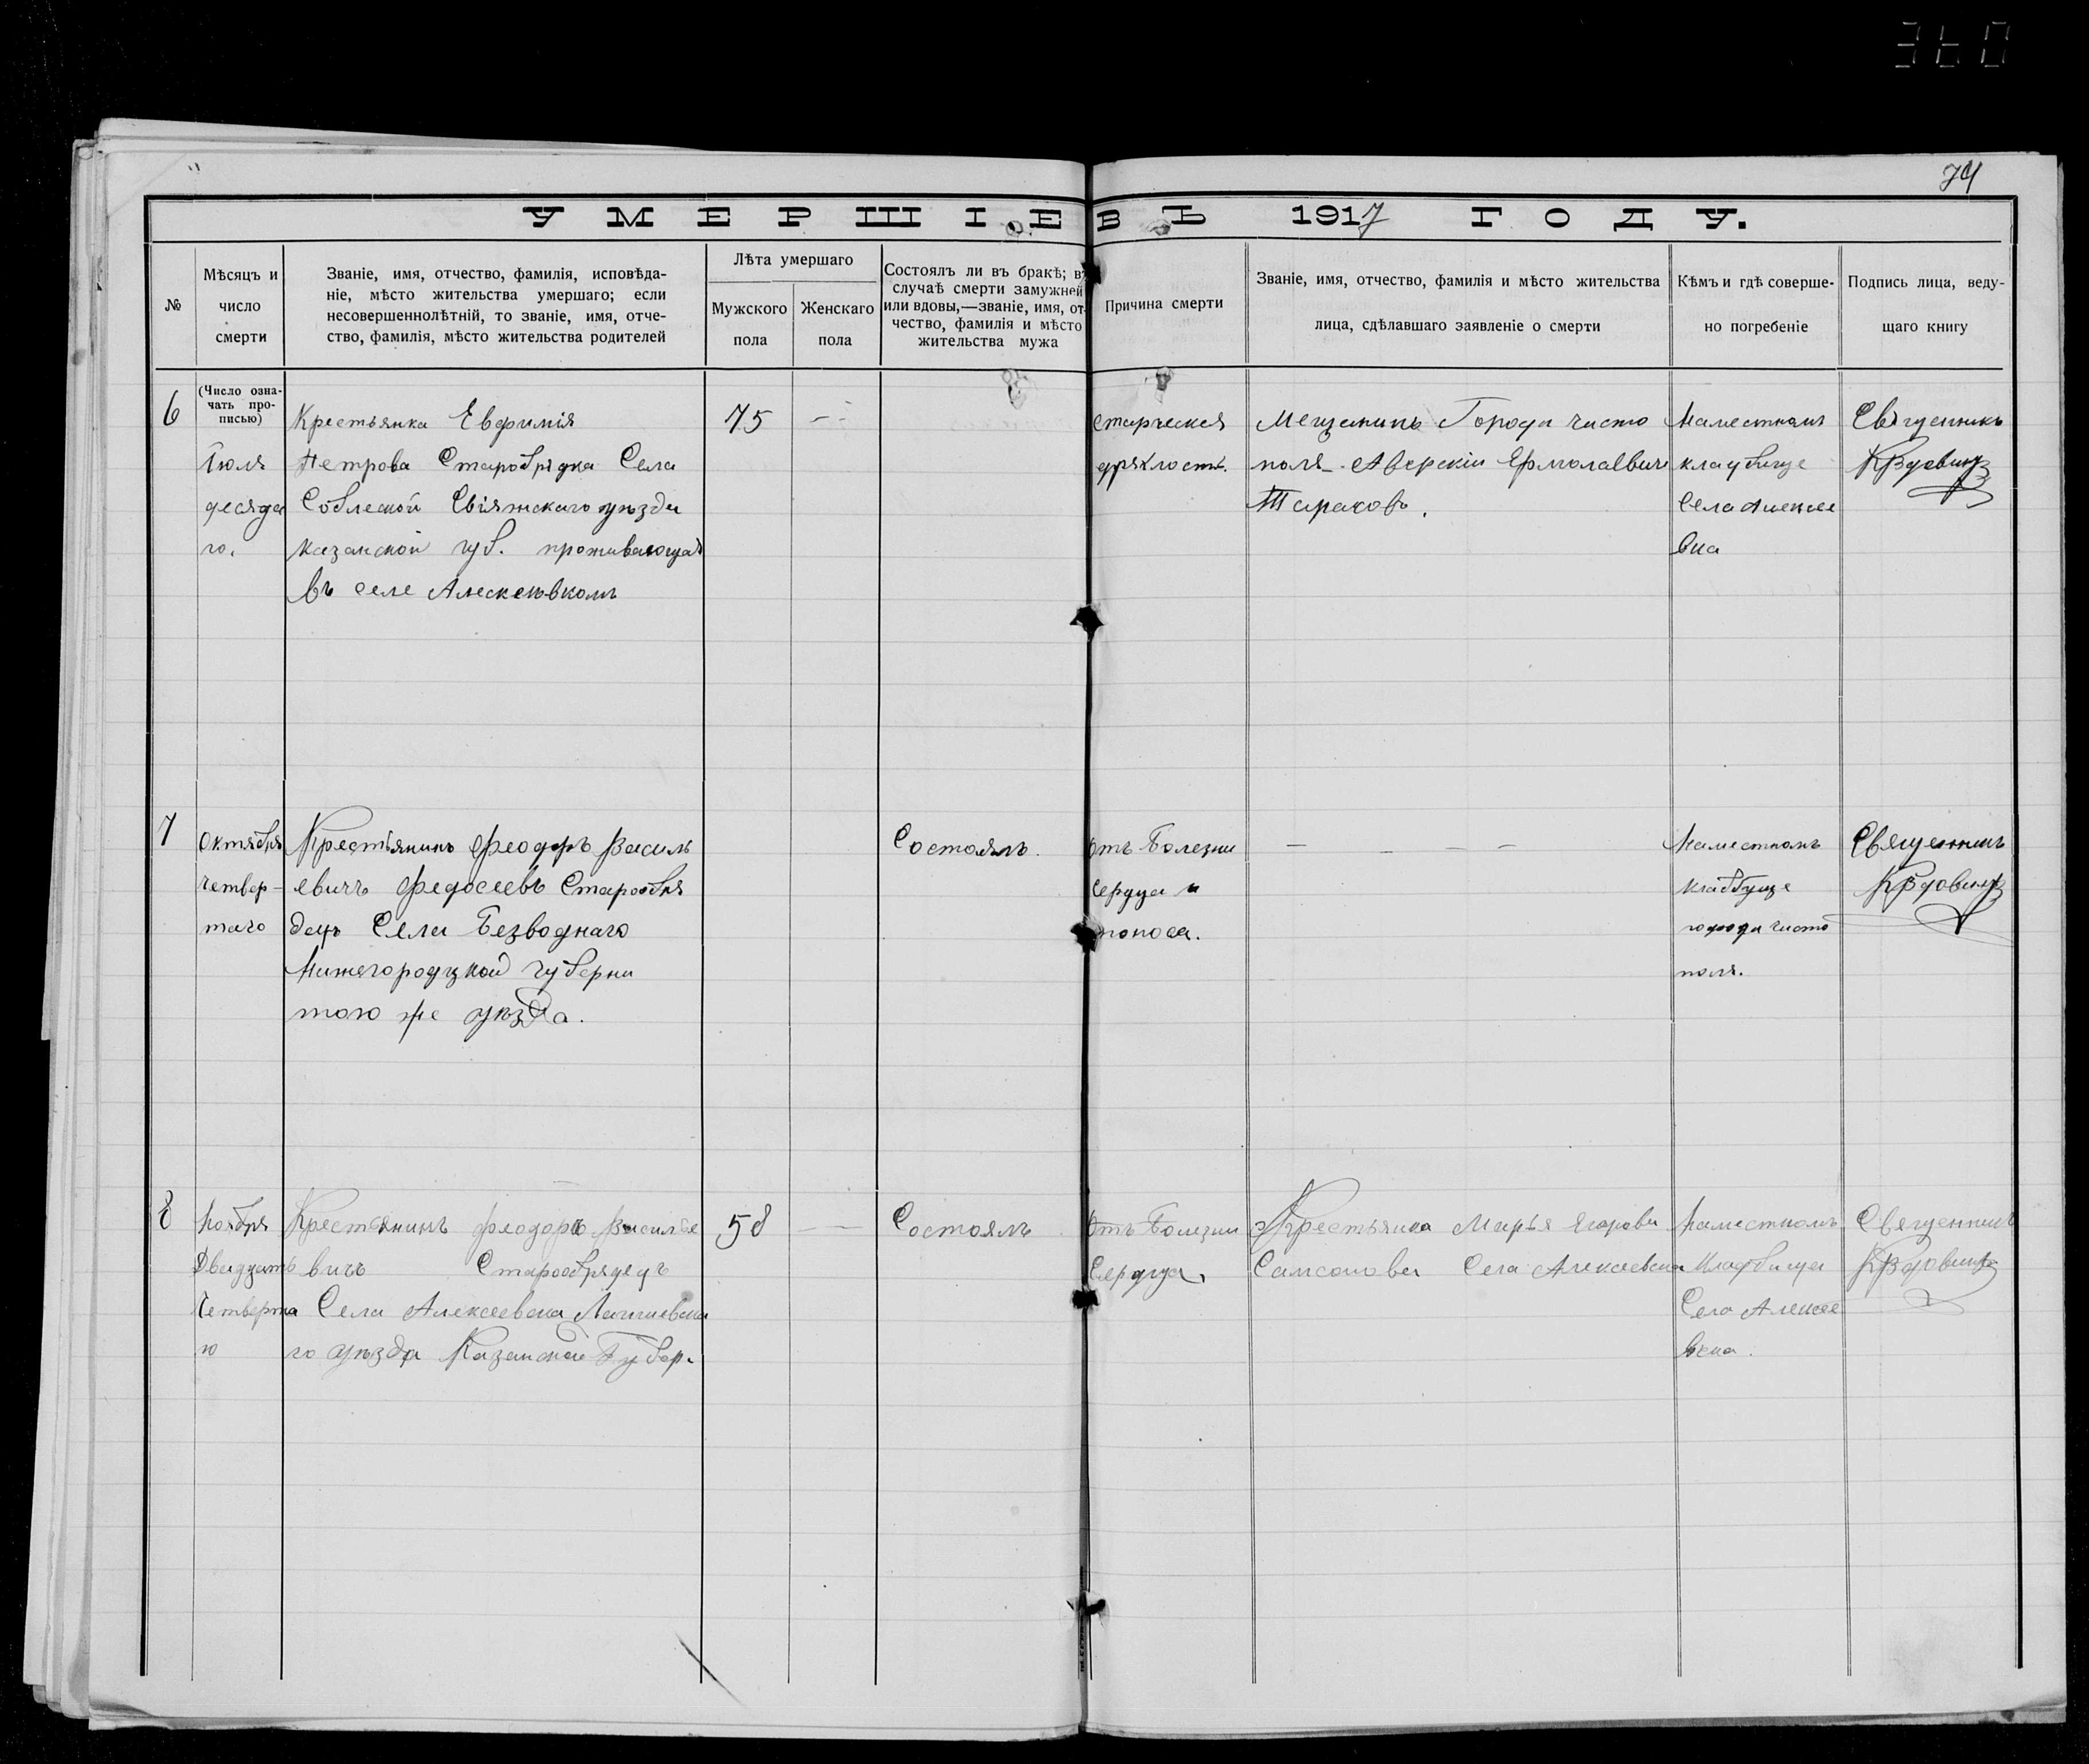 360
74
УМЕРШІЕ ВЪ 1917 ГОДУ.
№
Мѣсяцъ и
число
смерти
Званіе, имя, отчество, фамилія, исповѣда-
ніе, мѣсто жительства умершаго; если
несовершеннолѣтній, то званіе, имя, отче-
ство, фамилія, мѣсто жительства родителей
Лѣта умершаго
Мужского
пола
Женскаго
пола
Состоялъ ли въ бракѣ; въ
случаѣ смерти замужней
или вдовы,—званіе, имя, от-
чество, фамилія и мѣсто
жительства мужа
Причина смерти
Званіе, имя, отчество, фамилія и мѣсто жительства
лица, сдѣлавшаго заявленіе о смерти
Кѣмъ и гдѣ соверше-
но погребеніе
Подпись лица, веду-
щаго книгу
6
(Число озна-
чать про-
писью)
Июля
десята
го.
Крестьянка Евфимія
Петрова Старобрядка Села
Свіяжскаго уѣзда
казанской губ. проживающая
въ селе
75
— —
старческая
дряхлость.
Мещанинъ Города чисто
поля - Аверскіи Ермолаевич
Тараковъ.
На местномъ
кладбище
Села Алексее
вка
Священникъ
7
Октября
четвер-
таго
Крестьянинъ Феодоръ Василь
евичъ Федосеевъ Старообря
децъ Села Безводнаго
Нижегородцкой губерни
тою же уѣзда.
Состоялъ.
отъ Болезни
сердца и
поноса.
— — — —
На местномъ
кладбище
города чисто
поля.
Священникъ
8
Ноября
Двадцать
Четверта
го
Крестьянинъ Феодоръ Василье
вичъ Старообрядецъ
Села Алексеевска Лаишевска
го уѣзда Казанской Губер.
58
— —
Состоялъ
отъ Болезни
Сердца,
Крестьянка Марья Егорова
Самсонова Села Алексеевска
На местномъ
Кладбища
Село Алексее
вска.
Священникъ